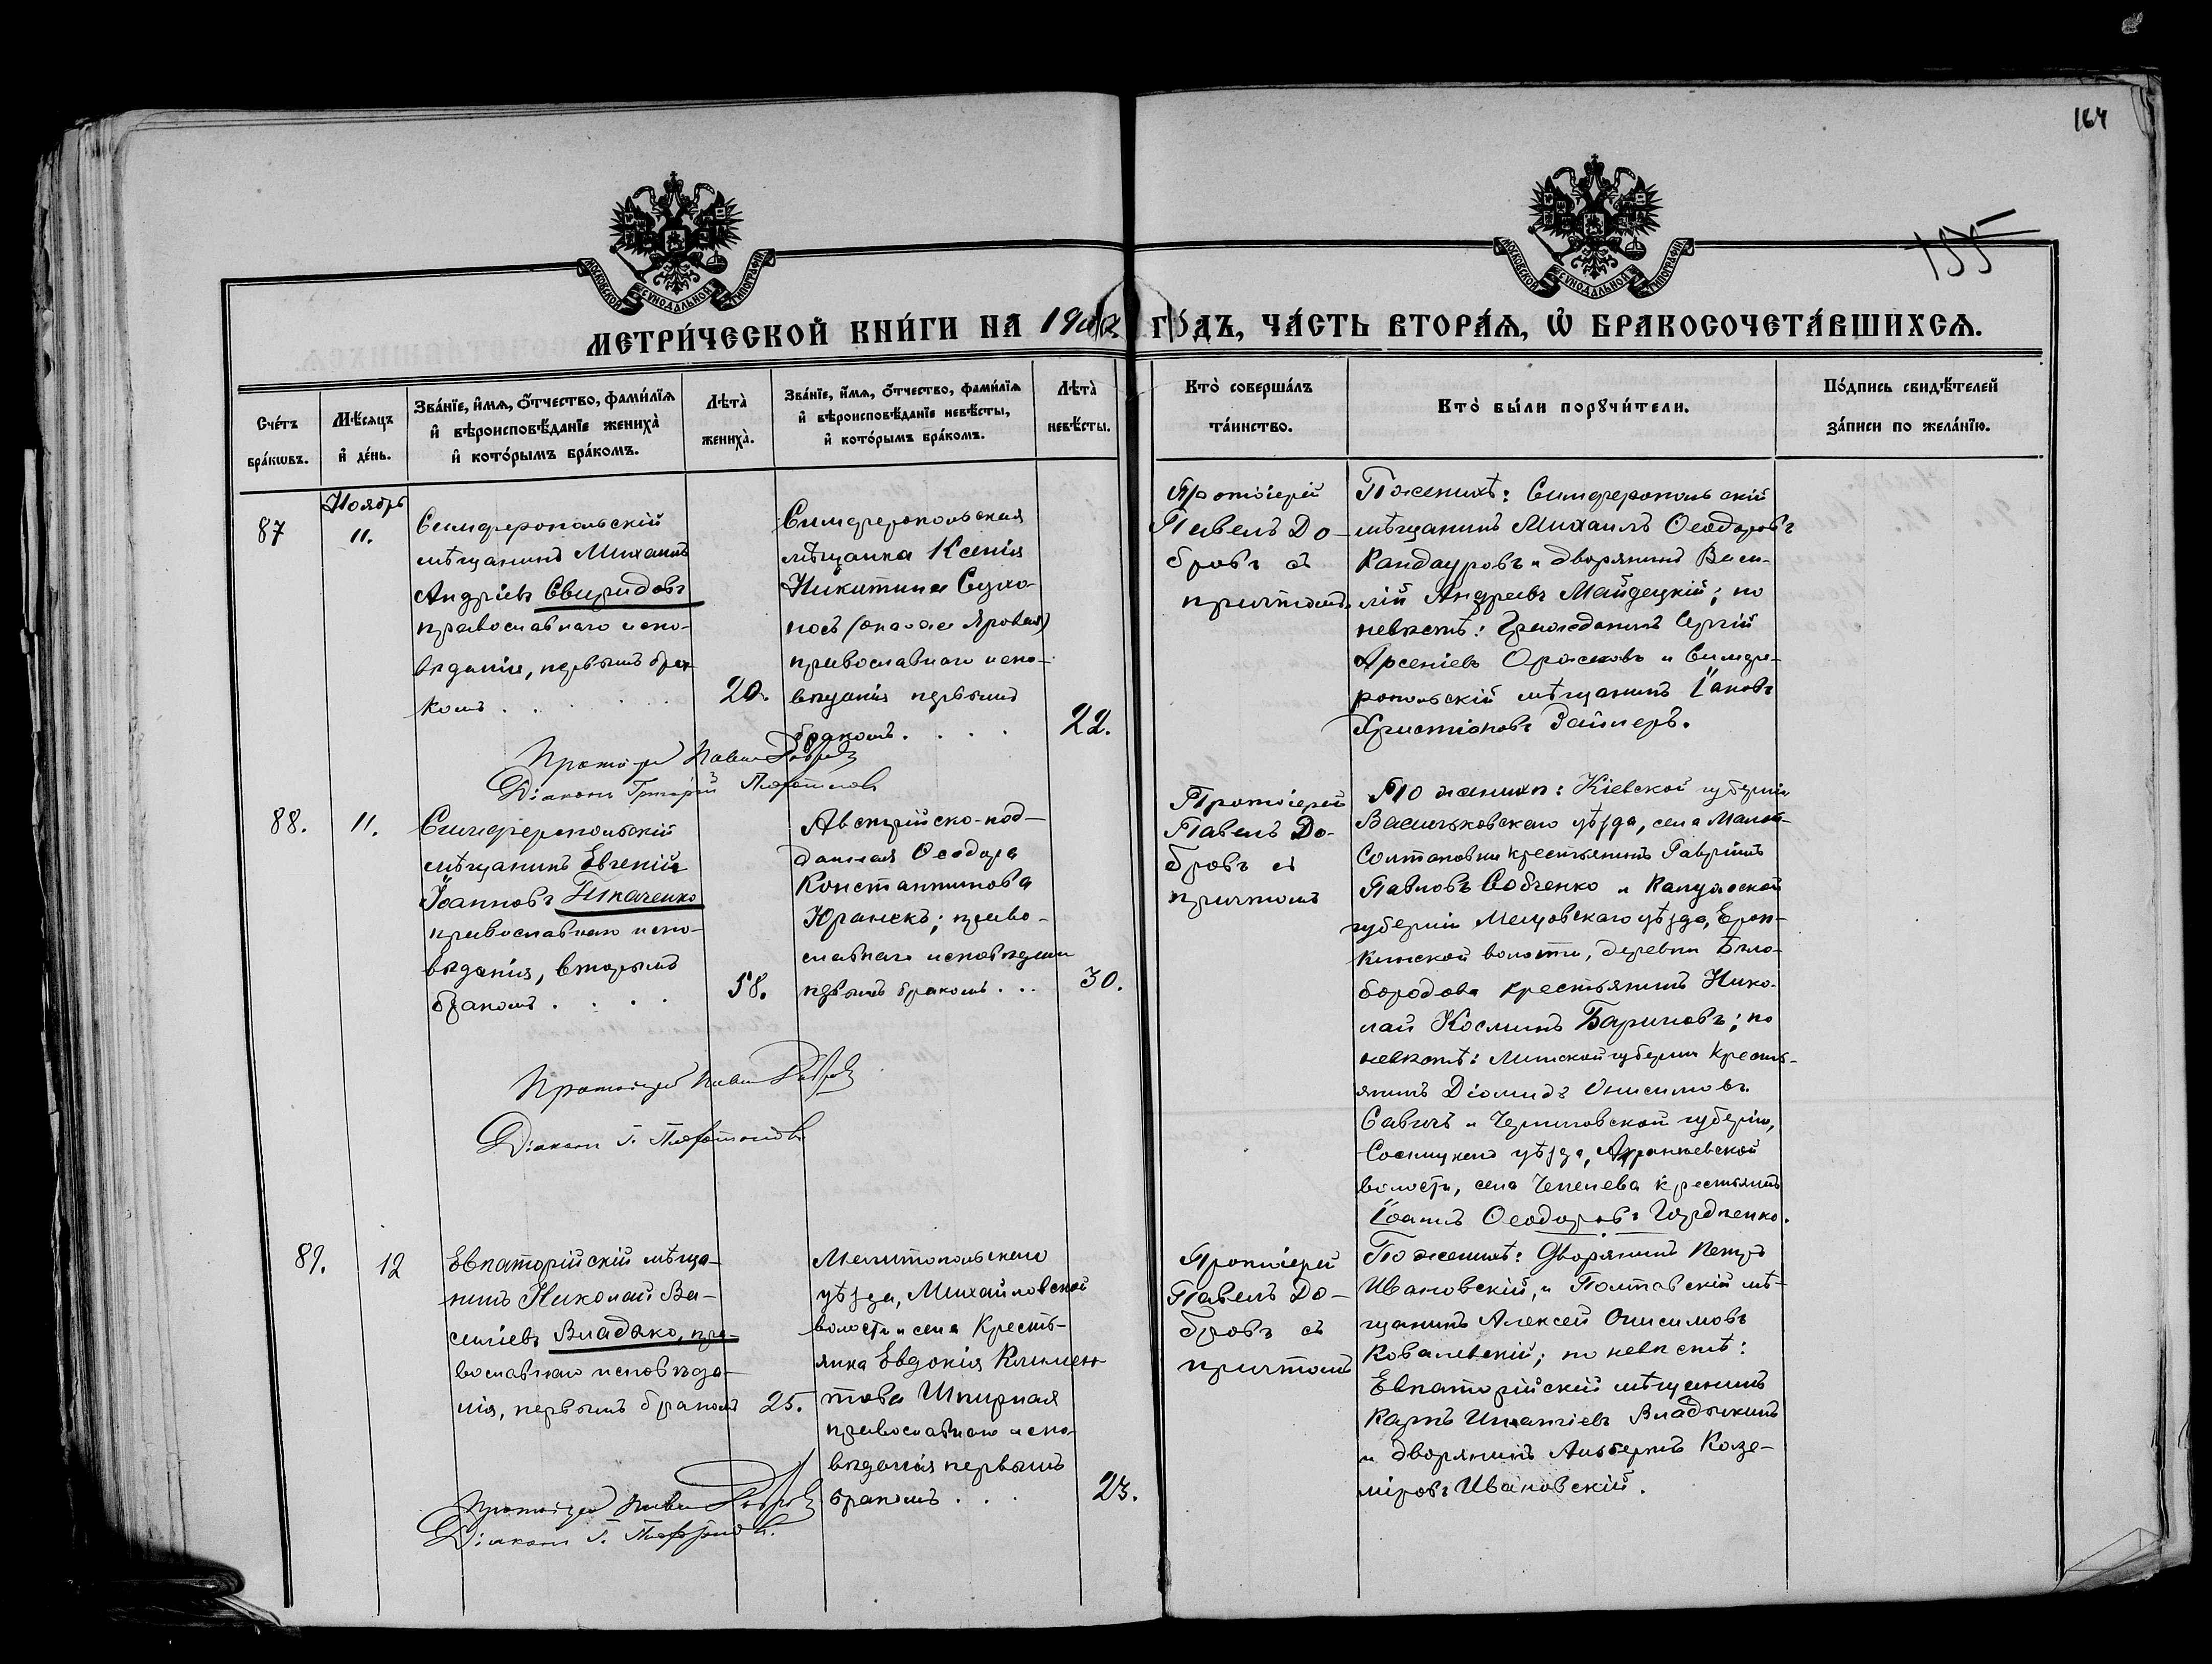 164
155
МОСКОВСКОЙ СѴНОДАЛЬНОЙ ТИПОГРАФІИ
МОСКОВСКОЙ СѴНОДАЛЬНОЙ ТИПОГРАФІИ
МЕТРИ́ЧЕСКОЙ КНИ́ГИ НА 19 ГО́ДЪ, ЧА́СТЬ ВТОРА́Ѧ, Ѡ҆ БРАКОСОЧЕТА́ВШИХСѦ.
Сче́тъ
бра́кѡвъ.
Мѣ́сяцъ
и҆ де́нь.
Зва́нїе, и҆́мѧ, ѻ҆́тчество, фами́лїѧ
и҆ вѣроисповѣ́данїе жениха̀
и҆ кото́рымъ бра́комъ.
Лѣта̀
жениха̀.
Зва́нїе, и҆́мѧ, ѻ҆́тчество, фами́лїѧ
и҆ вѣроисповѣ́данїе невѣ́сты,
и҆ кото́рымъ бра́комъ.
Лѣта̀
невѣ́сты.
Кто̀ соверша́лъ
та́инство.
Кто̀ бы́ли порꙋчи́тели.
По́дпись свидѣ́телей
за́писи по жела́нїю.
Ноябрь
87
11.
Симферопольскій
мѣщанинъ Михаилъ
Андріевъ Свиридовъ
православнаго испо-
вѣданія, первымъ бра-
комъ . . . . .
20.
Симферопольская
мѣщанка Ксенія
Никитина Сухо-
носъ (она же Яровая)
православнаго испо-
вѣданія первымъ
бракомъ. . . .
22.
Протоіерей
Павелъ До-
бровъ съ
причтомъ.
По женихѣ: Симферопольскій
мѣщанинъ Михаилъ Ѳеодоровъ
Кандауровъ и дворянинъ Васи-
лій Андреевъ Майдецкій; по
невѣстѣ: Гражданинъ Сергій
Арсеніевъ и Симфе-
ропольскій мѣщанинъ Іаковъ
Христіановъ Займеръ.
Протоіерей Павелъ Добровъ
Діаконъ Григорій
88.
11.
Симферопольскій
мѣщанинъ Евгеній
Іоанновъ Ткаченко
православнаго испо-
вѣданія, вторымъ
бракомъ . . . .
58.
Австрійско-под-
данная Ѳеодора
Константинова
Юранекъ; право-
славнаго исповѣданія
первымъ бракомъ . . .
30.
Протоіерей
Павелъ До-
бровъ съ
причтомъ
По женихѣ: Кіевской губерніи
Васильковскаго уѣзда, села Малой
Солтановки крестьянинъ Гавріилъ
Павловъ Собченко и Калужской
губерніи Мещовскаго уѣзда, Ероп-
кинской волости, деревни Бѣло-
бородова крестьянинъ Нико-
лай Косминъ Бариновъ; по
невѣстѣ: Минской губерніи кресть-
янинъ Діомидъ Онисимовъ
Савичъ и Черниговской губерніи,
Сосницкаго уѣзда,
волости, села Чепелева крестьянинъ
Іоаннъ Ѳеодоровъ Гордіенко.
Протоіерей Павелъ Добровъ
Діаконъ Г.
89.
12
Евпаторійскій мѣща-
нинъ Николай Ва-
силіевъ Владыко, пра-
вославнаго исповѣда-
нія, первымъ бракомъ
25.
Мелитопольскаго
уѣзда, Михайловской
волости и села кресть-
янка Евдокія Климен-
това Шпирная
православнаго испо-
вѣданія первымъ
бракомъ . . .
23.
Протоіерей
Павелъ До-
бровъ съ
причтомъ
По женихѣ: Дворянинъ Петръ
Ивановскій, и Полтавскій мѣ-
щанинъ Алексей Онисимовъ
Ковалевскій; по невѣстѣ:
Евпаторійскій мѣщанинъ
Карпъ Игнатіевъ Владыкинъ
и дворянинъ Альбертъ Казе-
міровъ Ивановскій.
Протоіерей Павелъ Добровъ
Діаконъ Г.